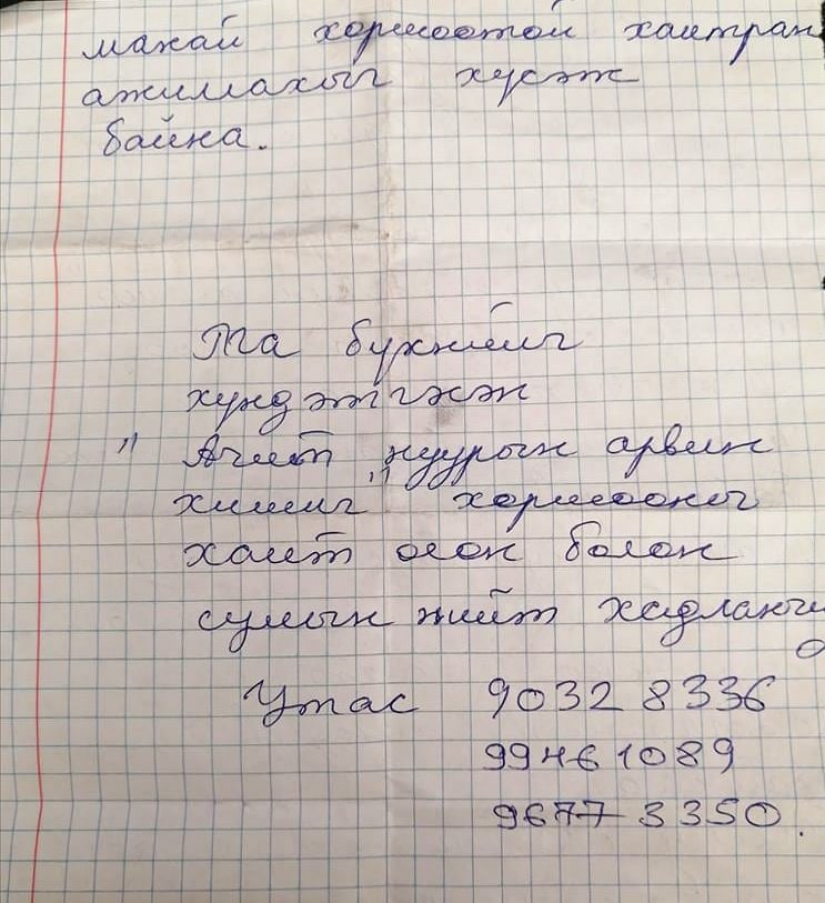 манай хоршоотой хамтран
ажиллахыг хүсэж
байна.
Та бүхнийг
хүндэтгэсэн
"Ачит нуурын арвин
хишиг" хоршооны
хамт олон болон
сумын нийт
Утас 9032 8336
99461089
9677 3350.